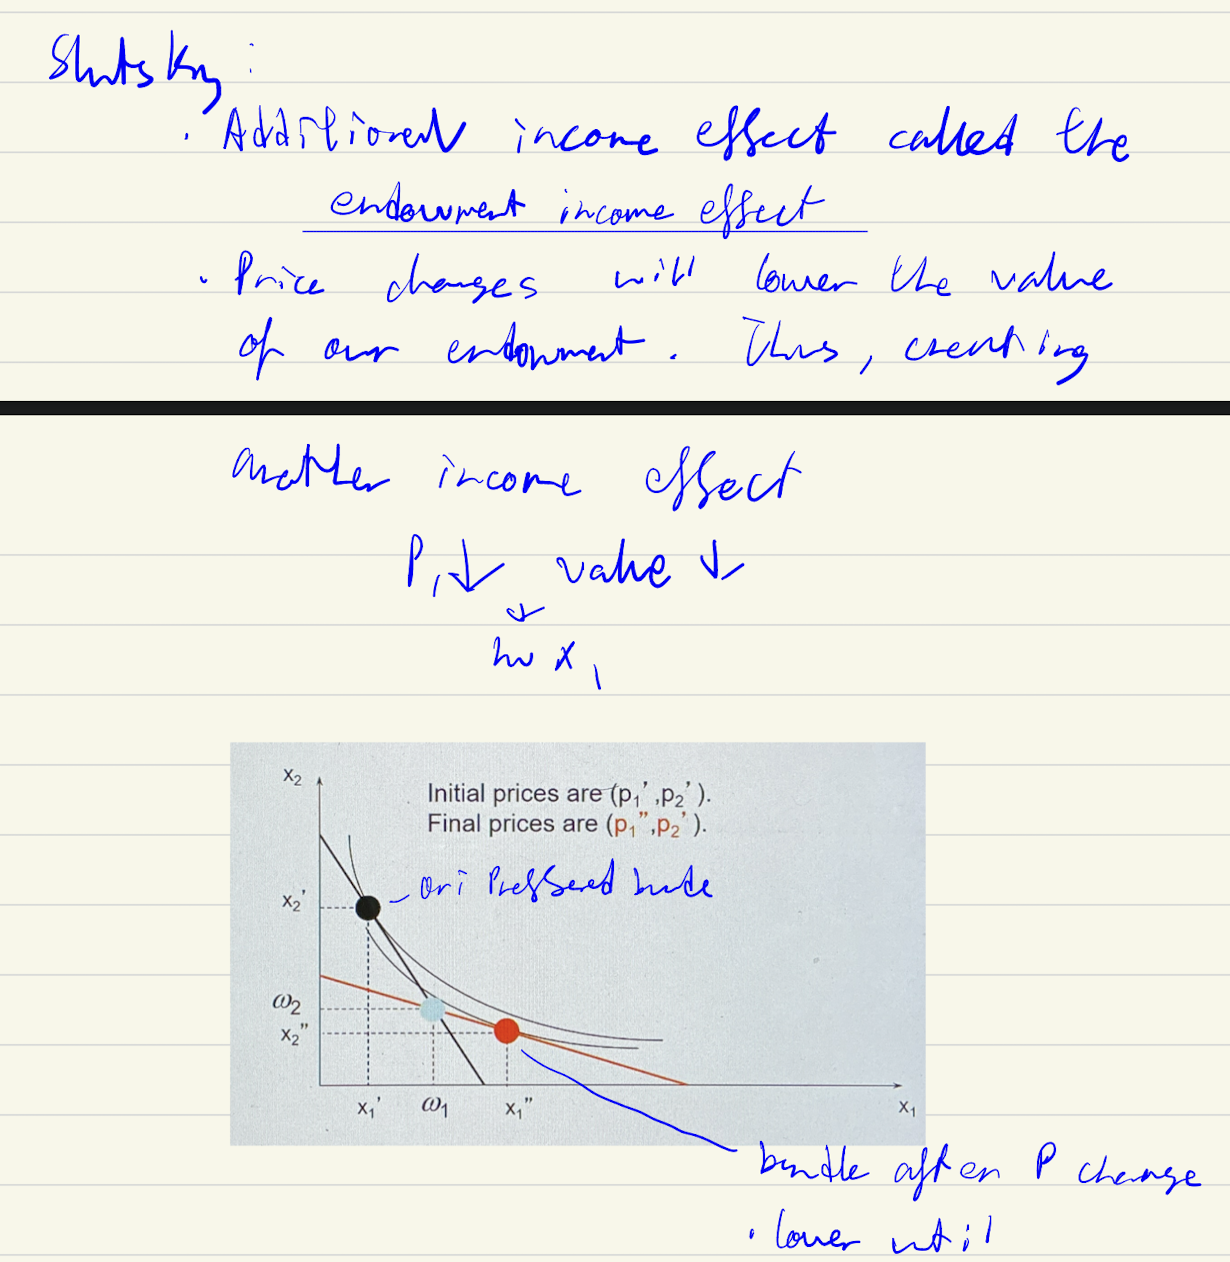 Slutsky:
· Additional income effect called the
endowment income effect
· Price changes will lower the value
of our endowment. Thus, creating
another income effect
P₁↓ value ↓
↓
x₁
x₂
Initial prices are (p₁′,p₂′).
Final prices are (p₁″,p₂′).
ori Preffered
x₂′
ω₂
x₂″
x₁′ ω₁ x₁″ x₁
bundle after P change
· lower util